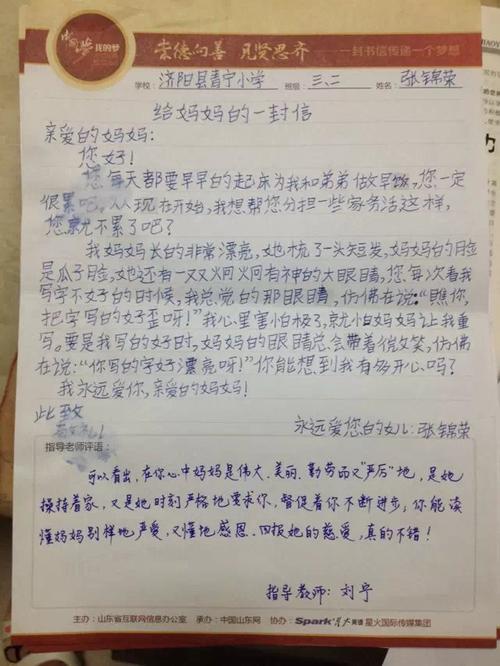 中国梦 我的梦
崇德向善 见贤思齐
一封书信传递一个梦想
学校: 济阳县青宁小学 班级: 三、二 姓名: 张锦荣
给妈妈的一封信
亲爱的妈妈:
您好!
您每天都要早早的起床为我和弟弟做早饭,您一定
很累吧。从现在开始,我想帮您分担一些家务活这样,
您就不累了吧?
我妈妈长的非常漂亮,她梳了一头短发,妈妈的脸
是瓜子脸,她还有一双炯炯有神的大眼睛,您每次看我
写字不好的时候,我总觉的那眼睛,仿佛在说:“瞧你,
把字写的好歪呀!”我心里害怕极了,就怕妈妈让我重
写。要是我写的好时,妈妈的眼睛总会带着微笑,仿佛
在说:“你写的字好漂亮呀!”你能想到我有多开心吗?
我永远爱你,亲爱的妈妈!
此致
敬礼!
永远爱您的女儿:张锦荣
指导老师评语:
可以看出,在你心中妈妈是伟大、美丽、勤劳而又“严厉”地,是她
操持着家,又是她时刻严格地要求你,督促着你不断进步,你能读
懂妈妈别样地严爱,又懂地感恩、回报她的慈爱,真的不错!
指导教师: 刘宁
主办:山东省互联网信息办公室 承办:中国山东网 协办: Spark 星火英语 星火国际传媒集团